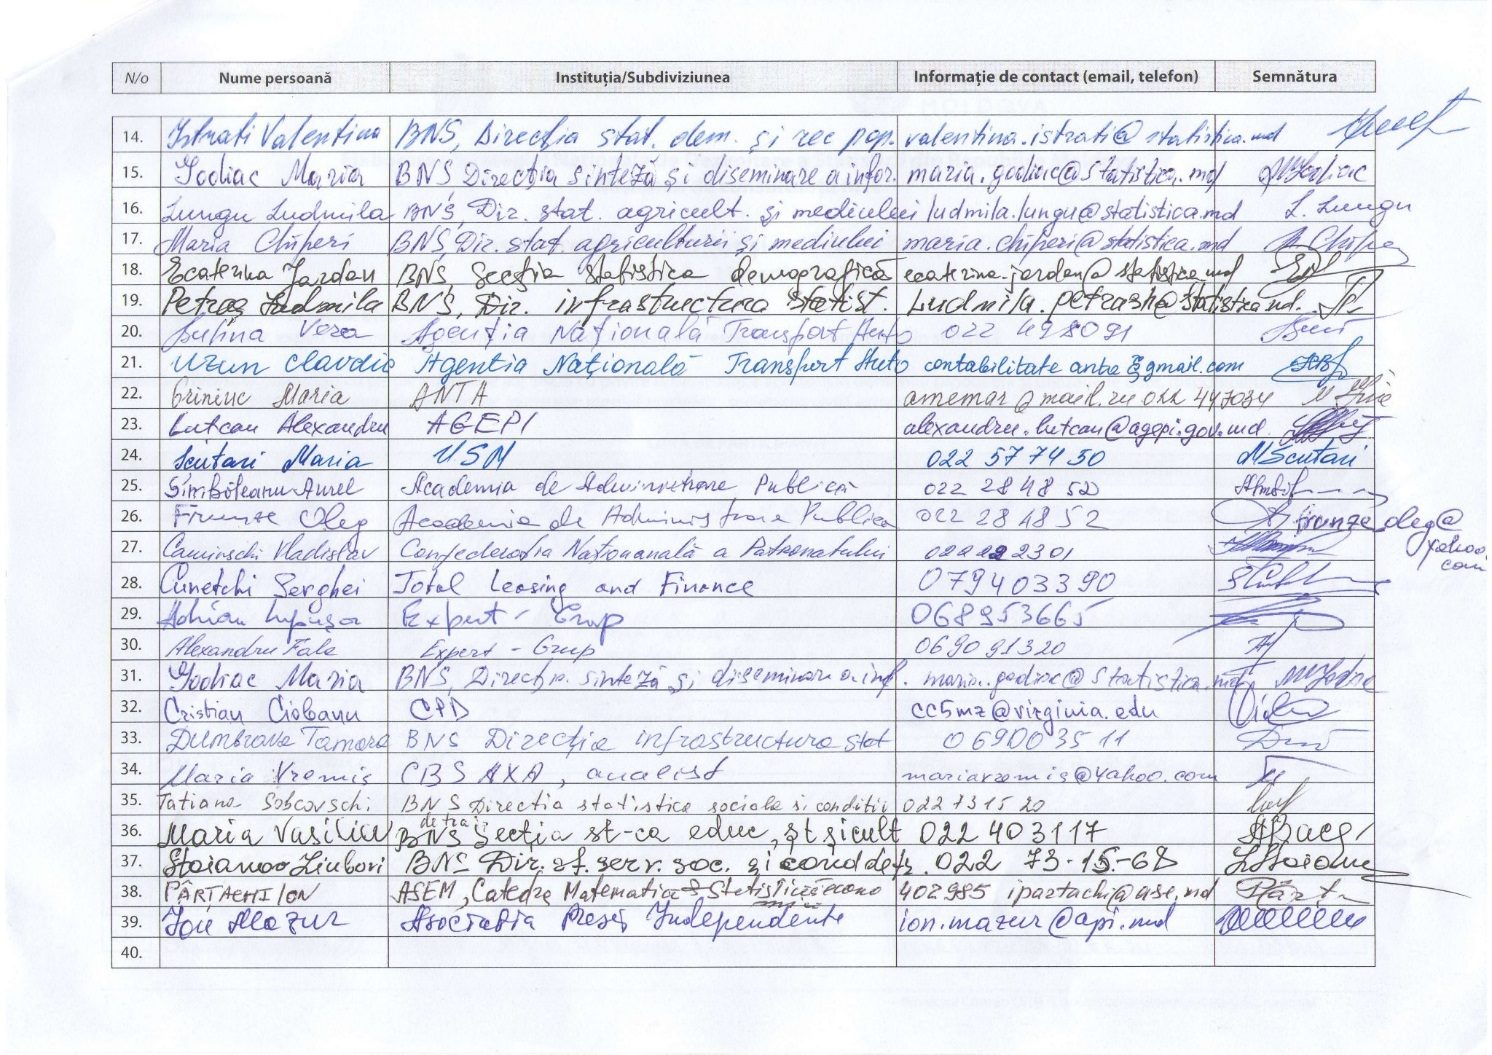 N/o Nume persoană Instituția/Subdiviziunea Informație de contact (email, telefon) Semnătura
14. Istrati Valentina BNS, Direcția stat. dem. și rec pop. valentina.istrati@statistica.md
15. Godiac Maria BNS Direcția sinteză și diseminare a infor. maria.godiac@statistica.md
16. Lungu Ludmila BNS, Dir. stat. agricult. și mediului ludmila.lungu@statistica.md L. Lungu
17. Maria Chiperi BNS, Dir. stat. agriculturii și mediului maria.chiperi@statistica.md
18. Ecaterina Jardan BNS Secția statistica demografică ecaterina.jardan@statistica.md
19. Petraș Ludmila BNS, Dir. infrastructura statist. Ludmila.petrash@statistica.md.
20. Vera Agenția Națională Transport Auto 022 498091
21. Uzun Claudia Agentia Națională Transport Auto contabilitate anta@gmail.com
22. Maria ANTA amemar@mail.ru 022 447034
23. Lutcan Alexandru AGEPI alexandru.lutcan@agepi.gov.md.
24. Scutari Maria USM 022 57 74 50 MScutari
25. Aurel Academia de Administrare Publică 022 28 48 52
26. Frunze Oleg Academia de Administrare Publica 022 28 48 52 frunze_oleg@
yahoo.
com
27. Caminschi Vladislav Confederația Naționanală a Patronatului 022222301
28. Cunetchi Serghei Total Leasing and Finance 079403390
29. Adrian Lupușor Expert-Grup 068953665
30. Alexandru Fala Expert-Grup 069091320
31. Godiac Maria BNS, Direcția. sinteză și diseminare a inf. maria.godiac@statistica.md
32. Cristian Ciobanu CPD cc5mz@virginia.edu
33. Dumbrava Tamara BNS Direcția infrastructura stat 069003511
34. Maria Vremiș CBS AXA, analist mariavremis@yahoo.com
35. Tatiana Sobcovschi BNS Directia statistica sociale si conditii 022 73 15 20
de trai
36. Maria Vasiliu BNS Secția st-ca educ, șt și cult 022 403117
37. Stoianov Liubovi BNS Dir. st. serv. soc. și cond de tr. 022 73-15-68
38. PÂRTACHI ION ASEM, Catedra Matematica & Statistică econo 402985 ipartachi@ase.md
39. Ion Mazur Asociația Presei Independente ion.mazur@api.md
40.